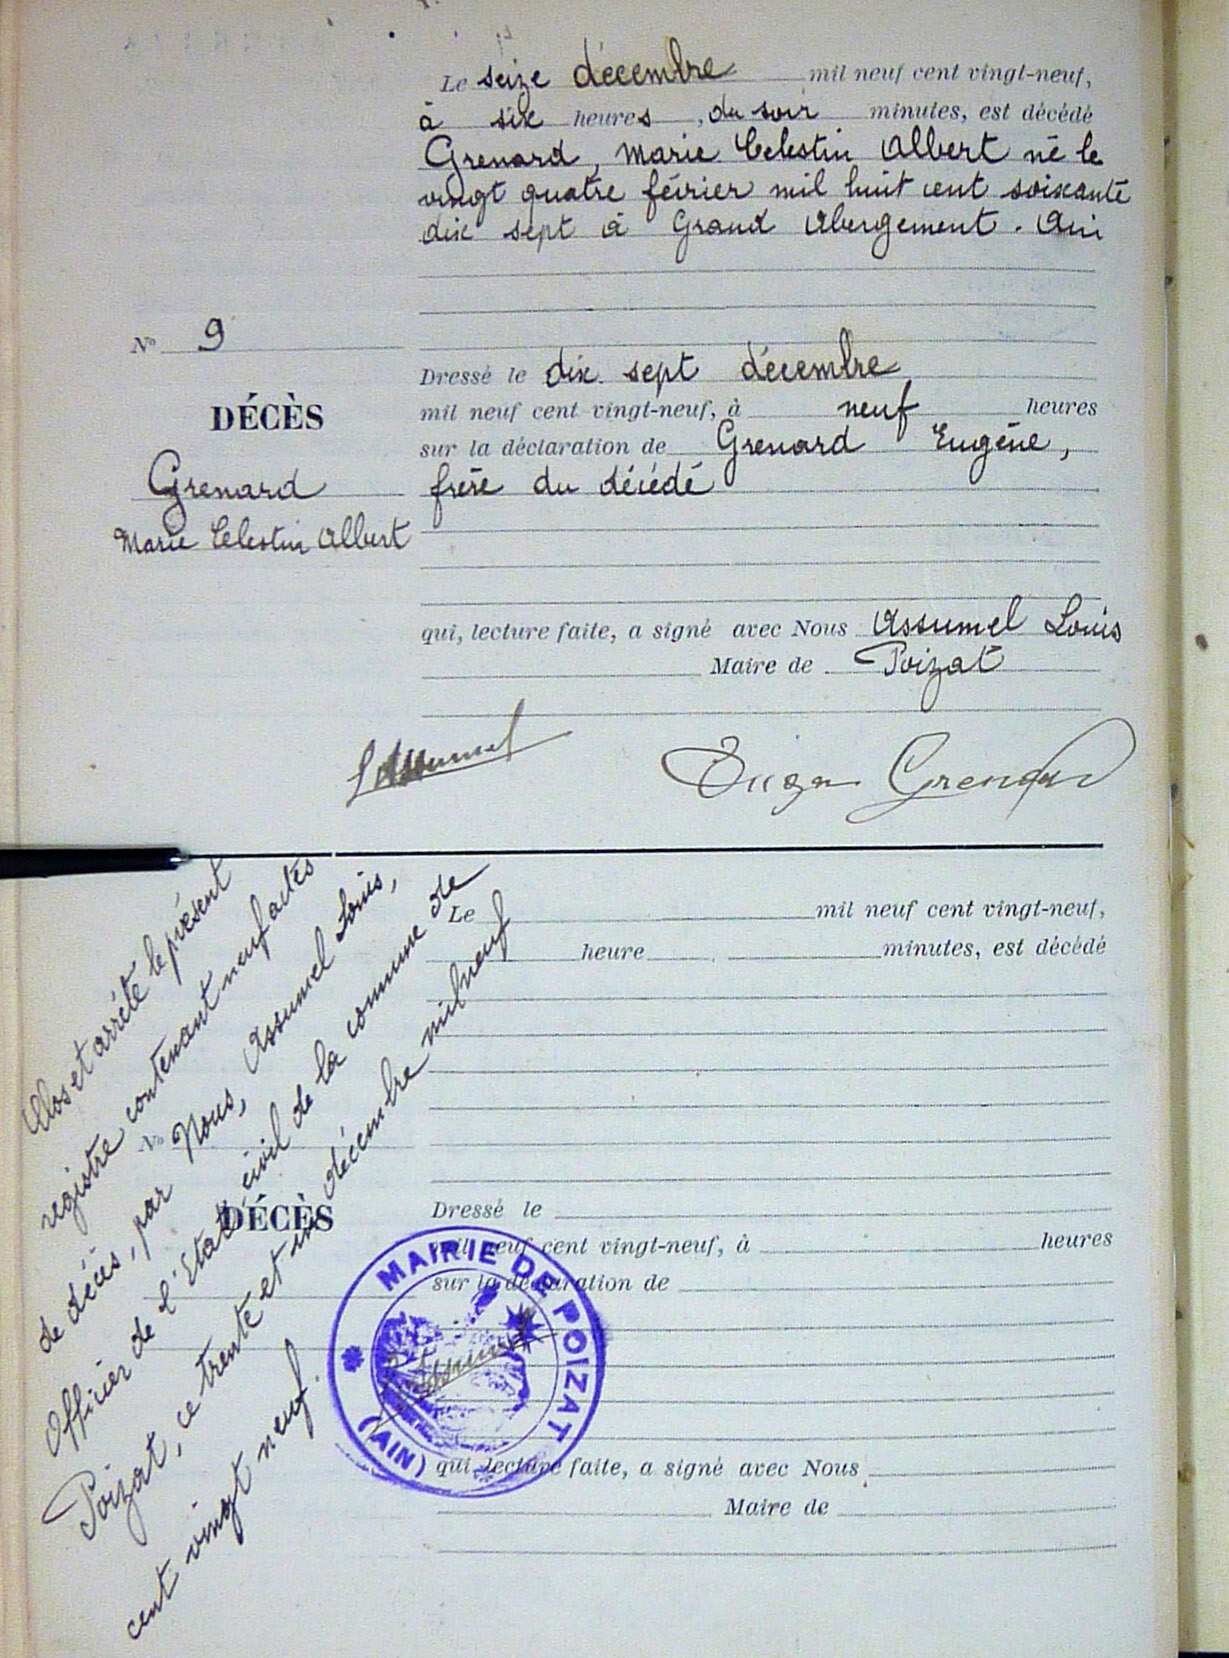 Le seize décembre mil neuf cent vingt-neuf,
à six heures, du soir minutes, est décédé
Grenard, Marie Celestin Albert né le
vingt quatre février mil huit cent soixante
dix sept à Grand Abergement. Ain
N° 9
DÉCÈS
Grenard
Marie Celestin Albert
Dressé le dix sept décembre
mil neuf cent vingt-neuf, à neuf heures
sur la déclaration de Grenard Eugène,
frère du décédé
qui, lecture faite, a signé avec Nous Assumel Louis
Maire de Poizat
L Assumel
Grenard
Clos et arrêté le présent
registre contenant neuf actes
de décès, par Nous, Assumel Louis,
Officier de l'Etat civil de la commune de
Poizat, ce trente et un décembre mil neuf
cent vingt neuf.
Le mil neuf cent vingt-neuf,
heure , minutes, est décédé
N°
DÉCÈS
Dressé le
mil neuf cent vingt-neuf, à heures
sur la déclaration de
MAIRIE DE POIZAT
(AIN)
L Assumel
qui, lecture faite, a signé avec Nous
Maire de